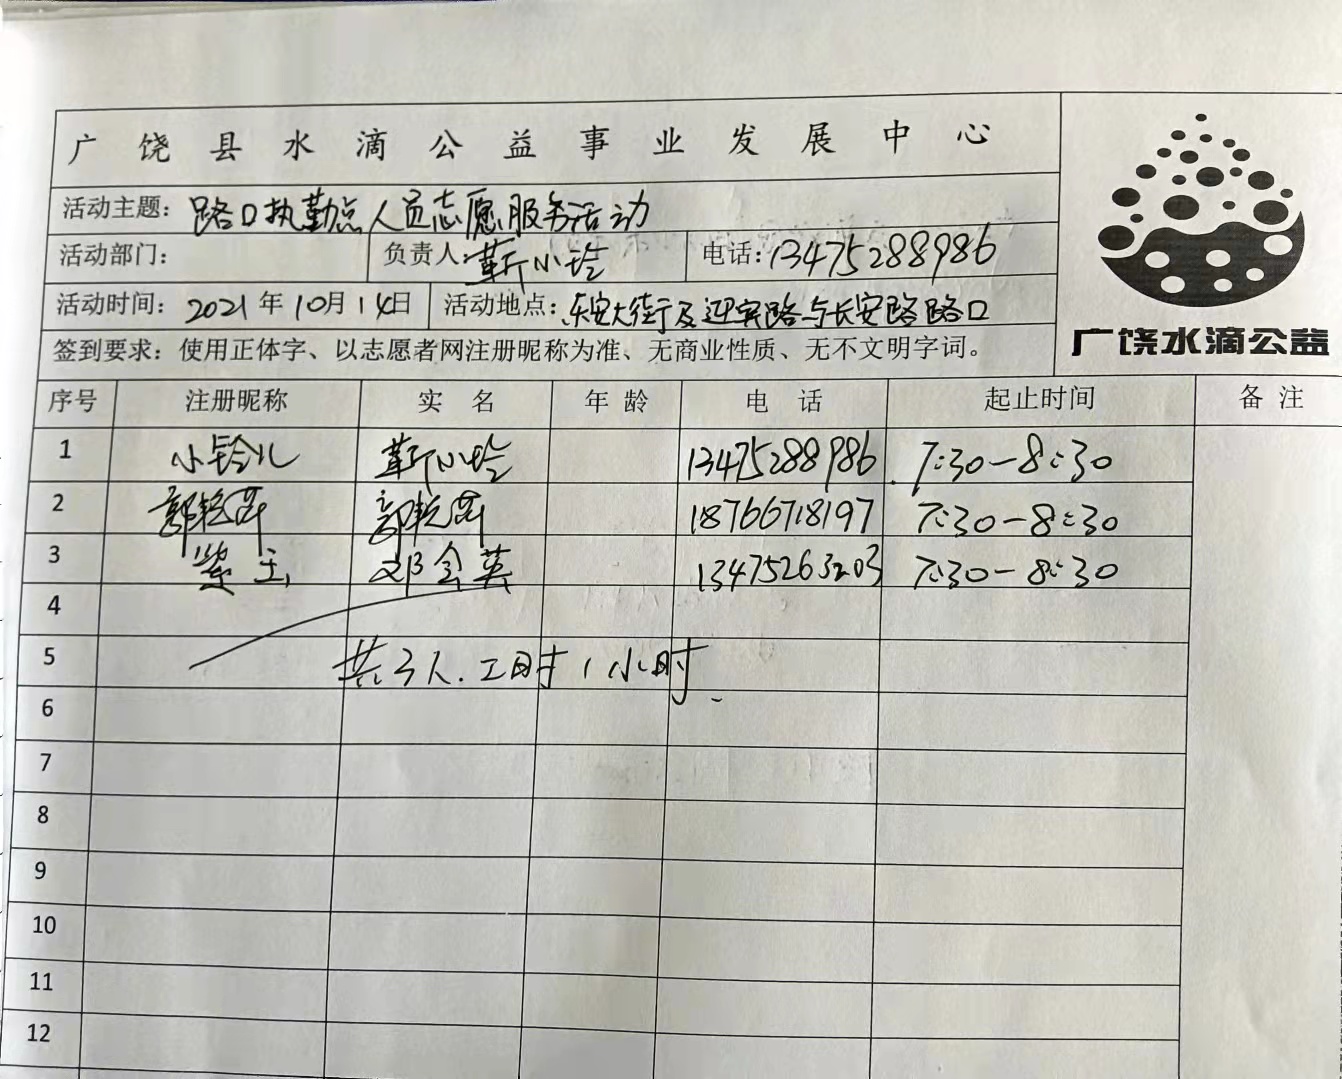 广饶县水滴公益事业发展中心
活动主题：路口执勤点人员志愿服务活动
活动部门： 负责人：靳小玲 电话：13475288986
活动时间：2021年10月14日 活动地点：乐安大街及迎宾路与长安路路口
签到要求：使用正体字、以志愿者网注册昵称为准、无商业性质、无不文明字词。
广饶水滴公益
序号 注册昵称 实名 年龄 电话 起止时间 备注
1 小铃儿 靳小玲 13475288986 7:30-8:30
2 郭艳 郭艳 18766718197 7:30-8:30
3 紫玉 邓会英 13475263203 7:30-8:30
4
5 共3人.工时1小时.
6
7
8
9
10
11
12